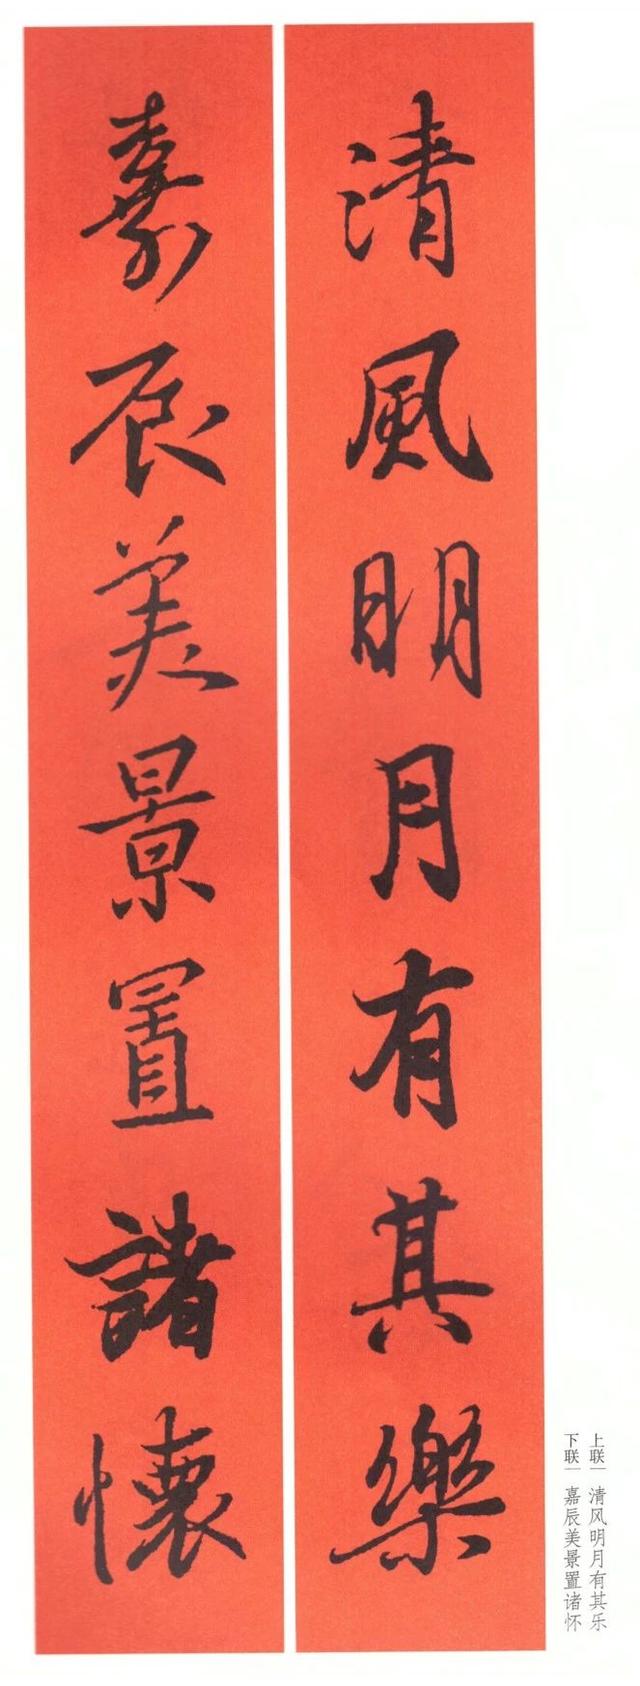 清風明月有其樂
嘉辰美景置諸懷
上联｜清风明月有其乐
下联｜嘉辰美景置诸怀